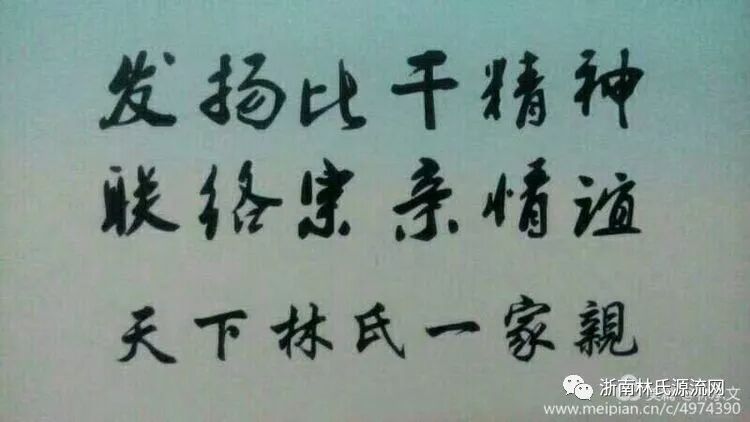 发扬比干精神
联络宗亲情谊
天下林氏一家親
浙南林氏源流网
www.meipian.cn/c/4974390